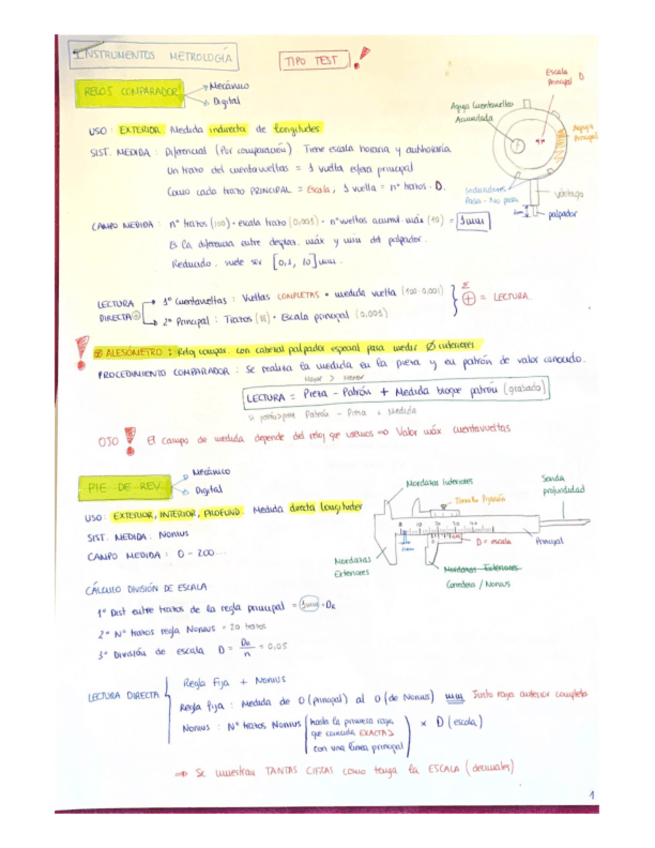 INSTRUMENTOS METROLOGÍA
TIPO TEST !
RELOJ COMPARADOR
Mecánico
Digital
USO: EXTERIOR. Medida indirecta de longitudes
SIST. MEDIDA: Diferencial (Por comparación) Tiene escala horaria y antihoraria
Un trazo del cuentavueltas = 1 vuelta esfera principal
Como cada trazo PRINCIPAL = Escala, 1 vuelta = nº trazos · D.
Escala Principal D
Aguja Cuentavueltas Acumulada
Aguja Principal
Pasa - No pasa
vástago
palpador
CAMPO MEDIDA: nº trazos (100) · escala trazo (0,001) · nº vueltas acumul. máx (10) = 1mm
Es la diferencia entre desplaz. máx y mín del palpador.
Reducido. suele ser [0,1, 10] mm.
LECTURA DIRECTA
1º Cuentavueltas: Vueltas COMPLETAS · medida vuelta (100·0,001)
2º Principal: Trazos · Escala principal (0,001)
Σ + = LECTURA.
ALESÓMETRO: Reloj compar. con cabezal palpador especial para medir Ø interiores
PROCEDIMIENTO COMPARADOR: Se realiza la medida en la pieza y en patrón de valor conocido.
Mayor > Menor
LECTURA = Pieza - Patrón + Medida bloque patrón (grabado)
Patrón - Pieza + Medida
OJO ! El campo de medida depende del reloj que usemos => Valor máx cuentavueltas
PIE DE REY
Mecánico
Digital
USO: EXTERIOR, INTERIOR, PROFUND. Medida directa Longitudes
SIST. MEDIDA: Nonius
CAMPO MEDIDA: 0 - 200...
Mordazas Interiores
Tornillo Fijación
Sonda profundidad
D = escala
Principal
Mordazas Exteriores
Mordazas Exteriores
Corredera / Nonius
CÁLCULO DIVISIÓN DE ESCALA
1º Dist entre trazos de la regla principal = 1mm = DR
2º Nº trazos regla Nonius = 20 trazos
3º División de escala D = DR/n = 0,05
LECTURA DIRECTA
Regla Fija + Nonius
Regla fija: Medida de 0 (principal) al 0 (de Nonius) mm Justo raya anterior completa
Nonius: Nº trazos Nonius (hasta la primera raya que coincida EXACTA con una línea principal) × D (escala)
=> Se muestran TANTAS CIFRAS como tenga la ESCALA (decimales)
1